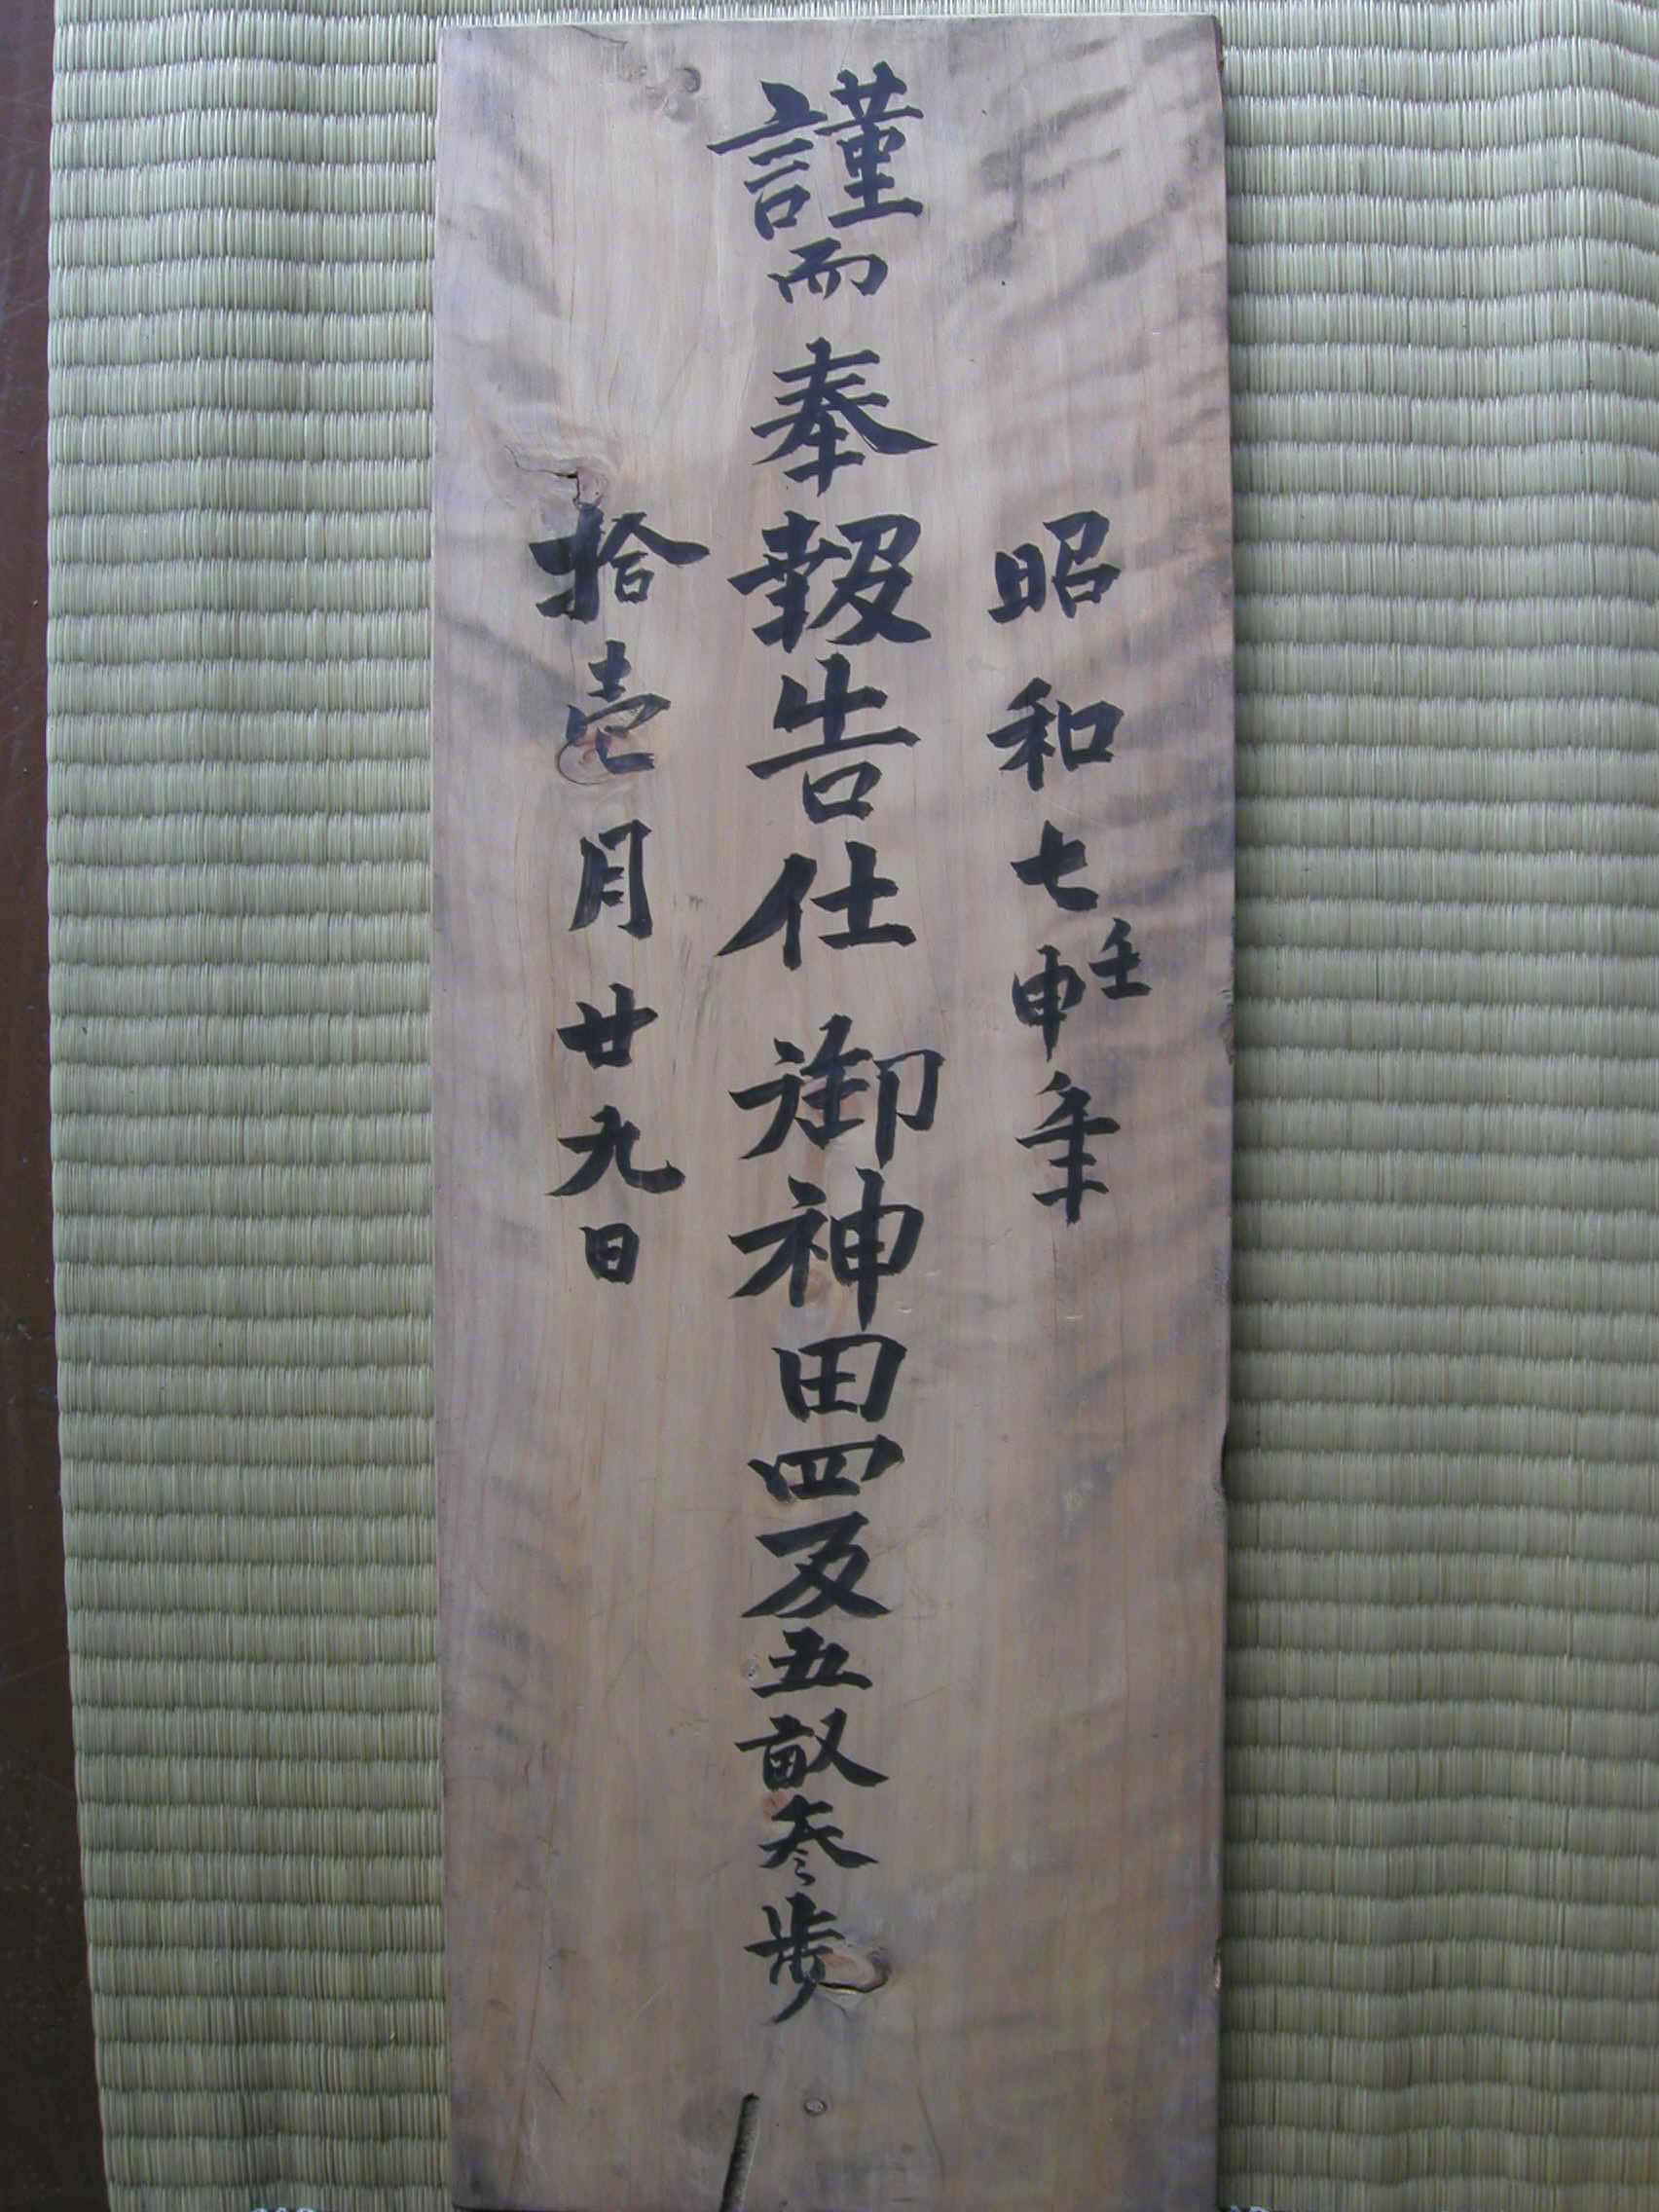 昭和七壬申年
謹而奉報告仕御神田四反五畝叁歩
拾壱月廿九日